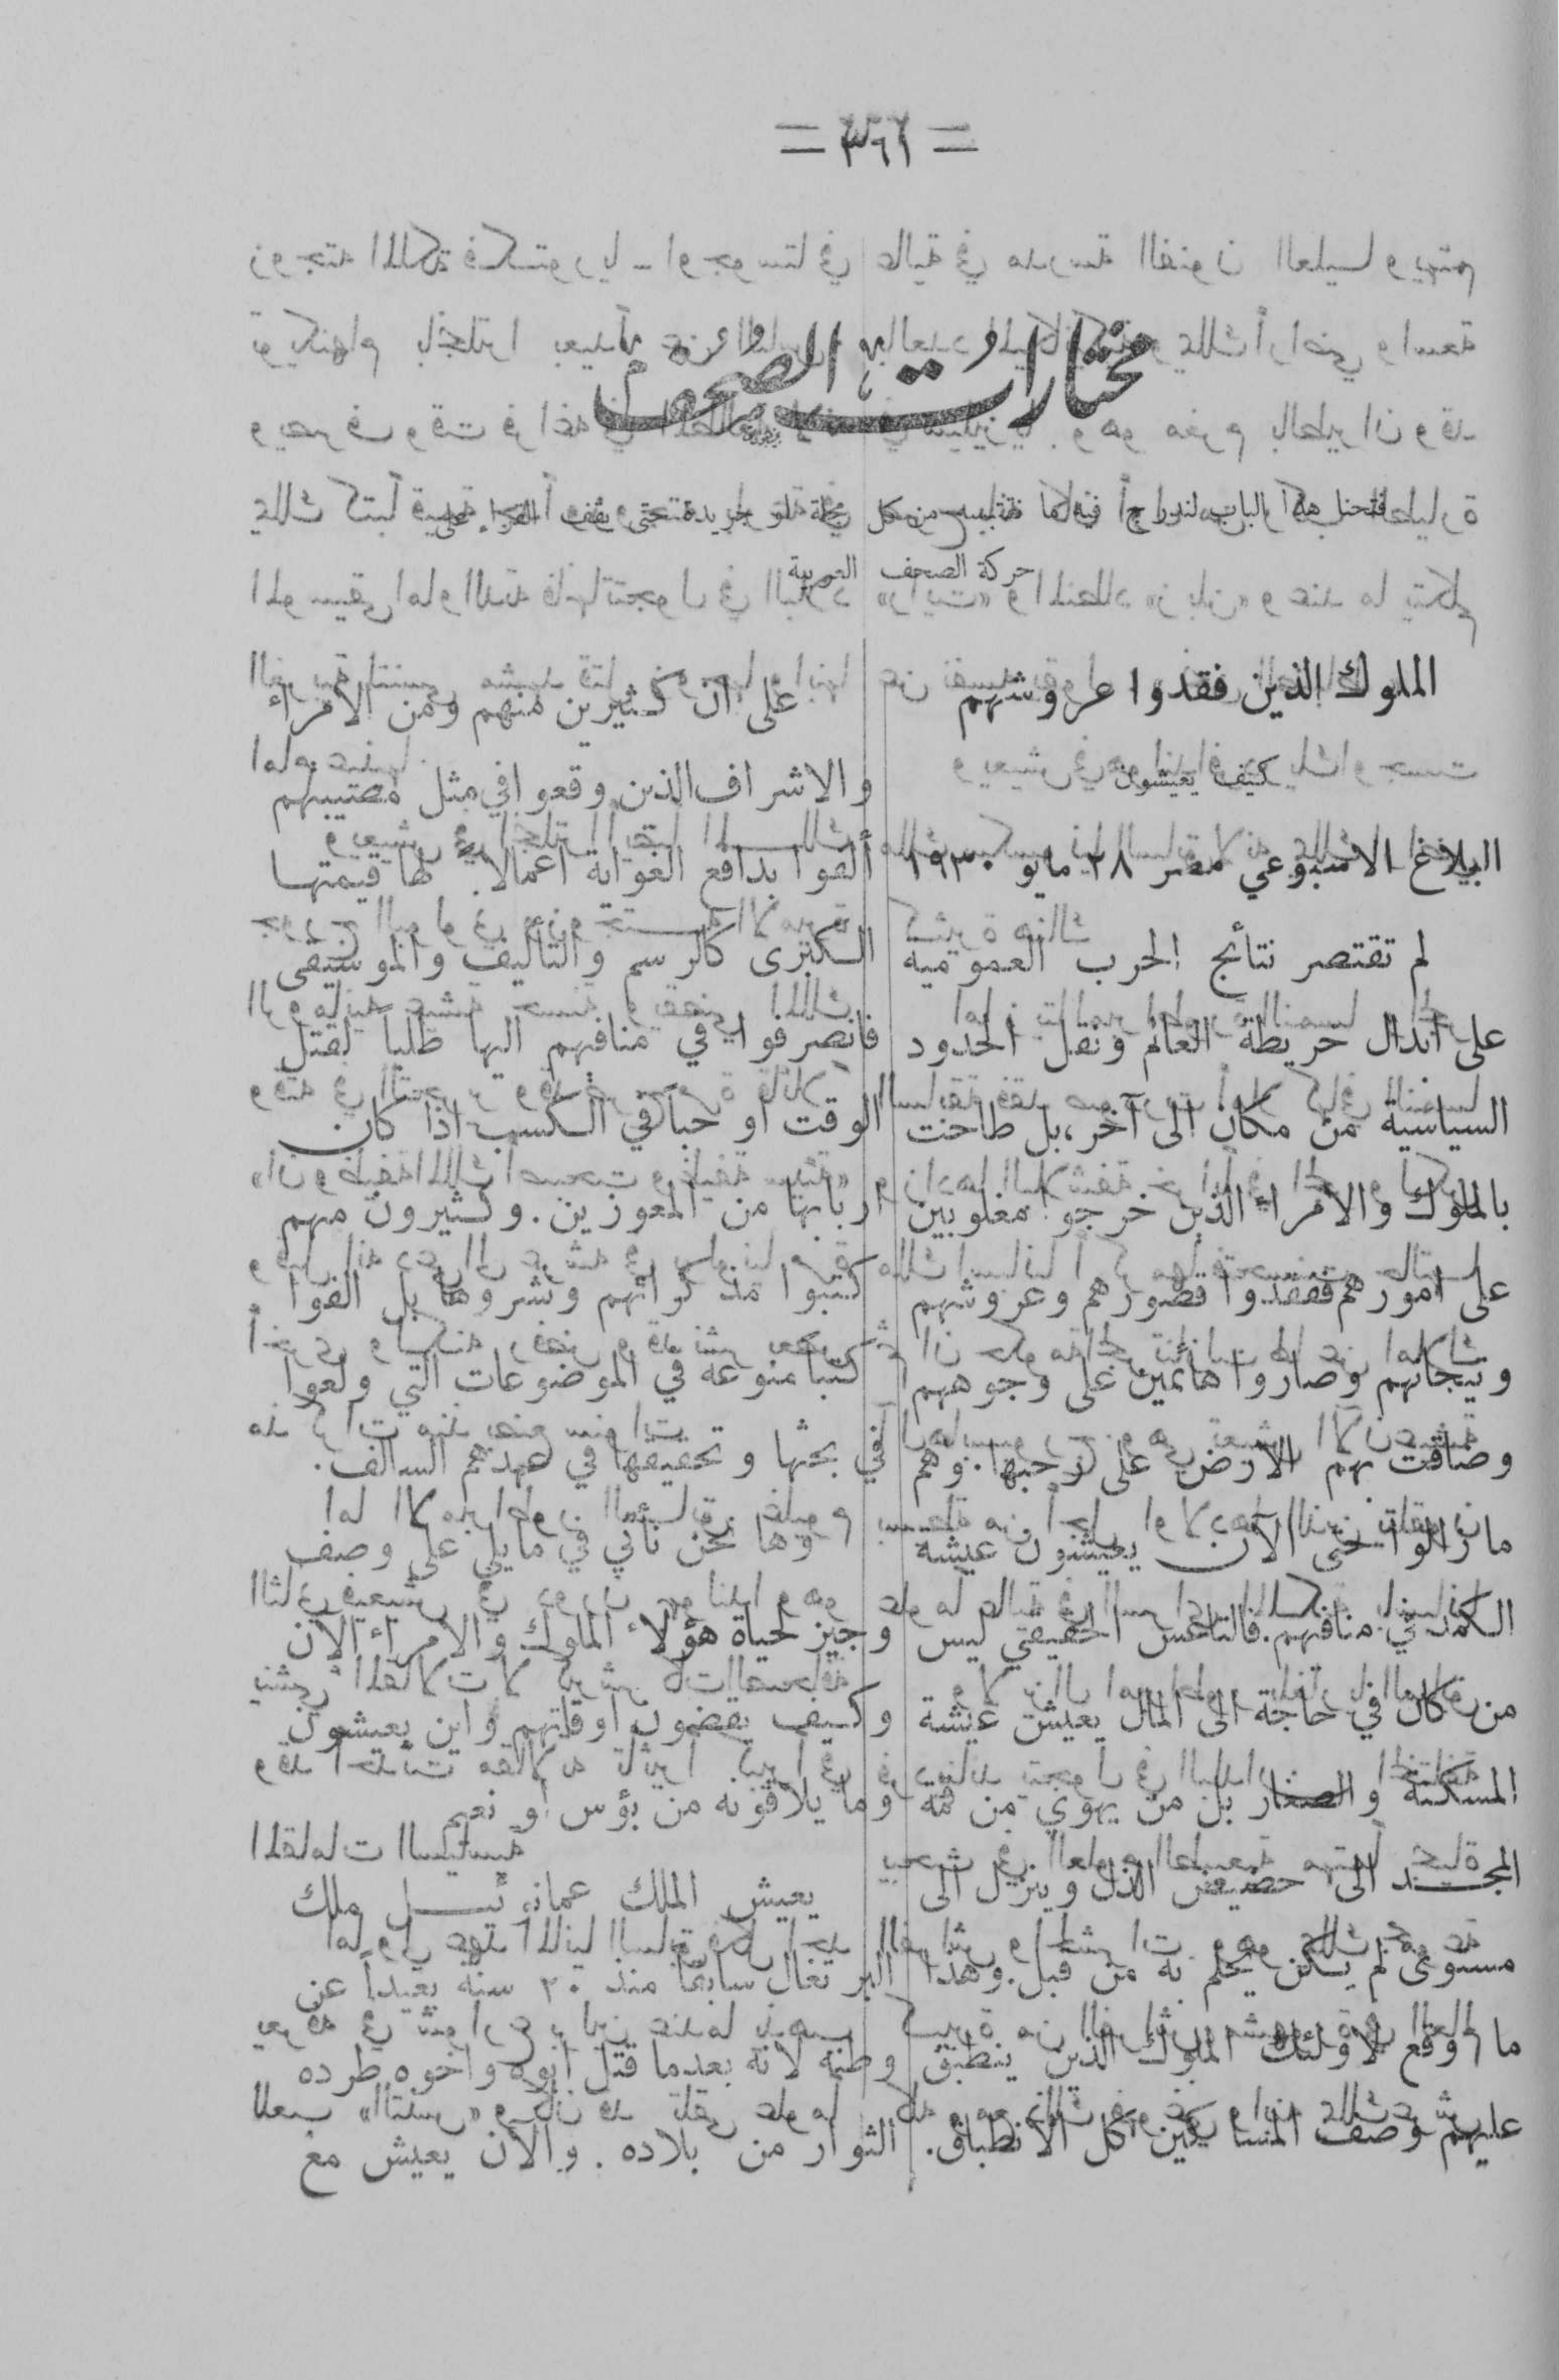 = ٣٦١ =
مختارات الصحف
فتحنا هذا الباب لندرج فيه ما نقتبسه من كل مجلة او جريدة حتى يقف القراء على
حركة الصحف العربية
الملوك الذين فقدوا عروشهم
كيف يعيشون
البلاغ الاسبوعي مصر ٢٨ مايو ١٩٣٠
لم تقتصر نتائج الحرب العمومية
على ابدال خريطة العالم ونقل الحدود
السياسية من مكان الى آخر، بل طاحت
بالملوك والامراء الذين خرجوا مغلوبين
على امورهم ففقدوا قصورهم وعروشهم
وتيجانهم وصاروا هائمين على وجوههم
وضاقت بهم الارض على رحبها. وهم
ما زالوا حتى الآن يعيشون عيشة
الكمد في منافيهم. فالتاعس الحقيقي ليس
من كان في حاجة الى المال يعيش عيشة
المسكنة والصغار بل من يهوي من قمة
المجد الى حضيض الذل وينزل الى
مستوى لم يكن يحلم به من قبل. وهذا
ما وقع لاولئك الملوك الذين ينطبق
عليهم وصف المساكين كل الانطباق.
على ان كثيرين منهم ومن الامراء
والاشراف الذين وقعوا في مثل مصيبتهم
ألفوا بدافع الغواية اعمالا لها قيمتها
الكبرى كالرسم والتأليف والموسيقى
فانصرفوا في منافيهم اليها طلباً لقتل
الوقت او حباً في الكسب اذا كان
اربابها من المعوزين. وكثيرون منهم
كتبوا مذكراتهم ونشروها بل الفوا
كتباً منوعة في الموضوعات التي ولعوا
في بحثها وتحقيقها في عهدهم السالف.
وها نحن نأتي في ما يلي على وصف
وجيز لحياة هؤلاء الملوك والامراء الآن
وكيف يقضون اوقاتهم واين يعيشون
وما يلاقونه من بؤس أو نعيم
يعيش الملك عمانوئيل ملك
البرتغال سابقاً منذ ٢٠ سنة بعيداً عن
وطنه لانه بعدما قتل ابوه واخوه طرده
الثوار من بلاده. والآن يعيش مع